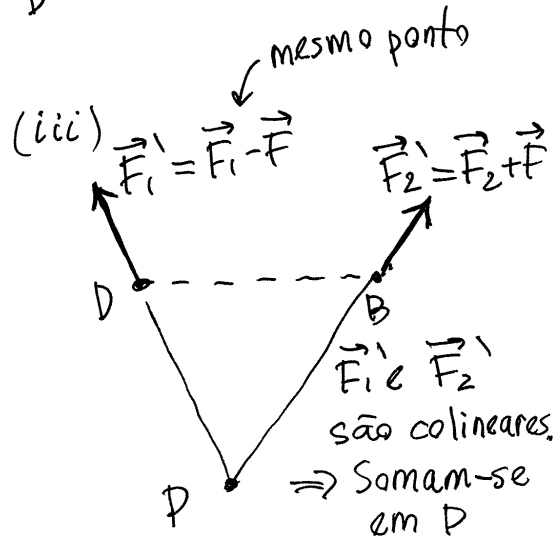 mesmo ponto
(iii) F₁' = F₁ - F
F₂' = F₂ + F
D
B
F₁' e F₂'
são colineares.
P
⇒ Somam-se
em P